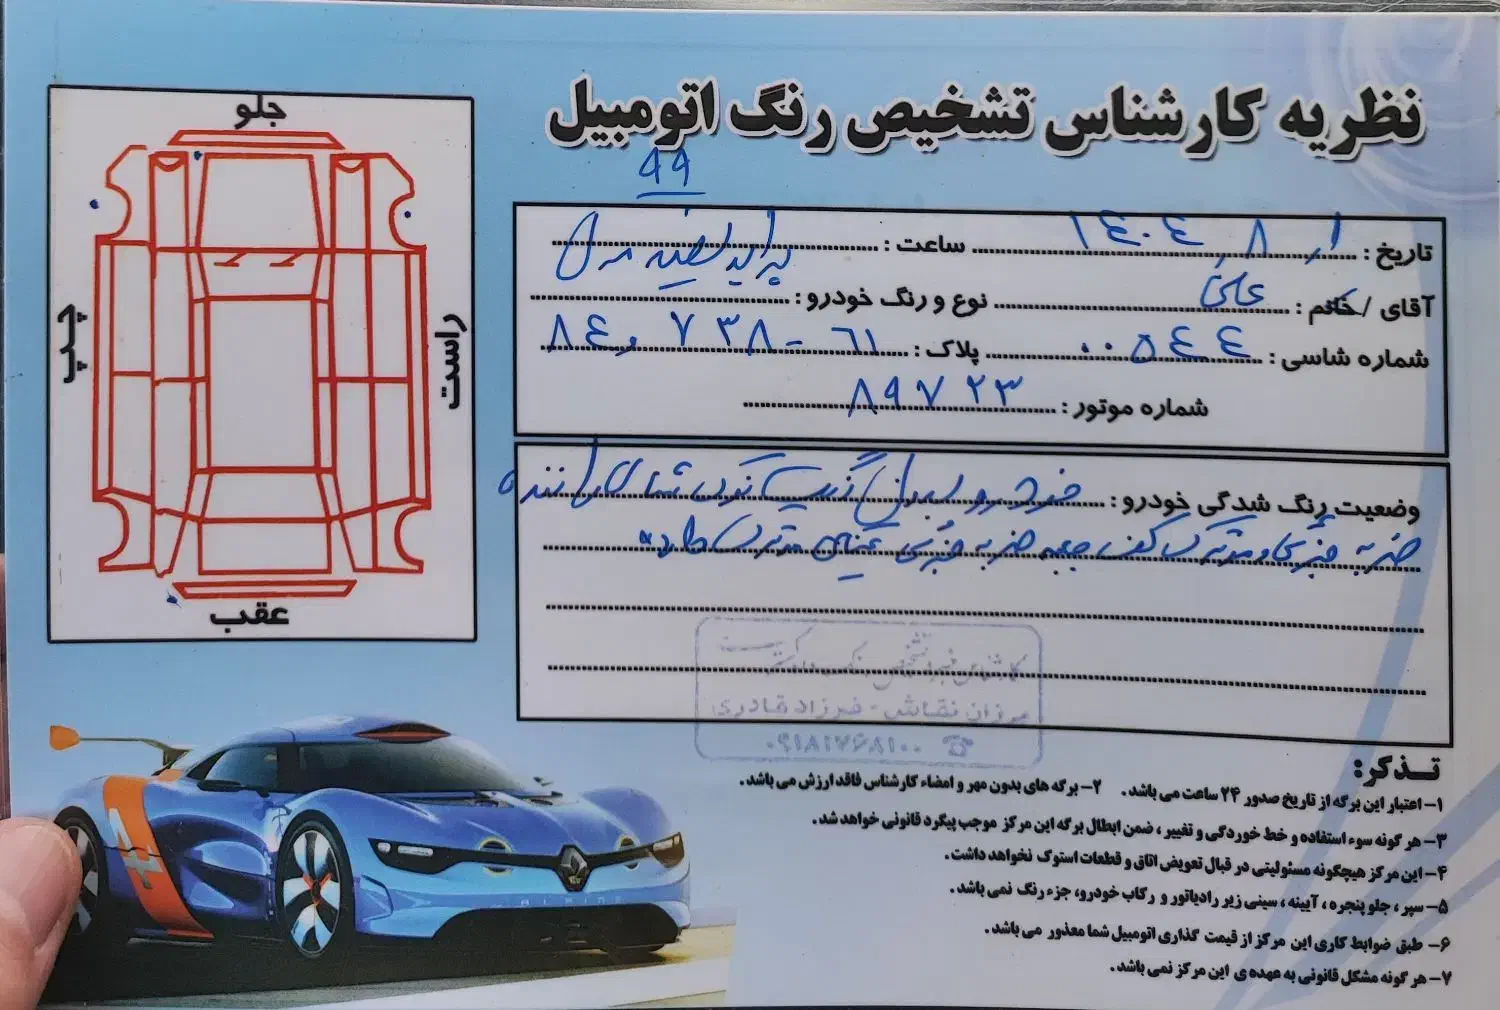 نظریه کارشناس تشخیص رنگ اتومبیل
۹۹
تاریخ : ۱۴۰۴ ۸ ساعت :
آقای / خانم : نوع و رنگ خودرو : پراید سفید مدل
شماره شاسی : ۰۰۵۴۴ پلاک : ۶۱ - ۷۳۸ و ۸۴
شماره موتور : ۸۹۷۲۳
وضعیت رنگ شدگی خودرو : خودرو بدون رنگ
ضربه جزیی کف جعبه ضربه جزیی دارد
جلو
چپ
راست
عقب
مرزان نقاش - فرزاد قادری
۰۹۱۸۱۷۶۸۱۰۰
تـذکر:
۱- اعتبار این برگه از تاریخ صدور ۲۴ ساعت می باشد. ۲- برگه های بدون مهر و امضاء کارشناس فاقد ارزش می باشد.
۳- هر گونه سوء استفاده و خط خوردگی و تغییر ، ضمن ابطال برگه این مرکز موجب پیگرد قانونی خواهد شد.
۴- این مرکز هیچگونه مسئولیتی در قبال تعویض اتاق و قطعات استوک نخواهد داشت.
۵- سپر ، جلو پنجره ، آیینه ، سینی زیر رادیاتور و رکاب خودرو، جزء رنگ نمی باشد.
۶- طبق ضوابط کاری این مرکز از قیمت گذاری اتومبیل شما معذور می باشد.
۷- هر گونه مشکل قانونی به عهده ی این مرکز نمی باشد.